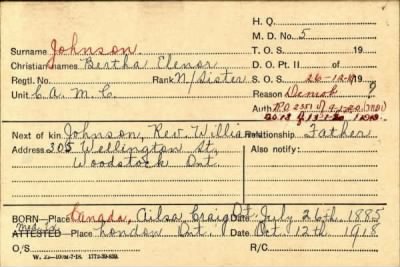 H. Q.
M. D. No. 5
Surname Johnson. T. O. S. 19
Christian names Bertha Elenor D. O. Pt. II of
Regtl. No. Rank N/Sister S. O. S. 26-12-19 19
Unit C.A.M.C. Reason Demob ?
Auth.
Next of kin Johnson, Rev. William Relationship Father
Address 305 Wellington St, Also notify:
Woodstock Ont.
BORN—Place Canada, Ailsa Craig Ont Date July 26th 1885
Med. Ex
ATTESTED—Place London Ont. Date Oct 12th 1918
O/S R/C.